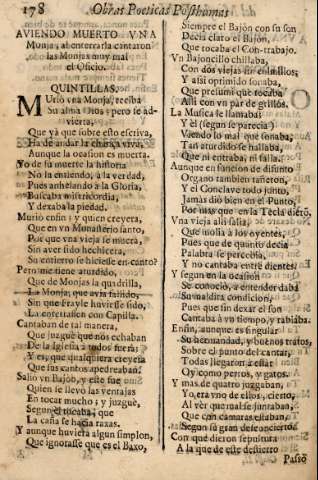 178 Obras Poeticas Posthumas
AVIENDO MUERTO VNA
Monja, al enterrarla cantaron
las Monjas muy mal
el Oficio.
QUINTILLAS.
MUriò vna Monja, reciba
Su alma Dios; pero se ad-
vierta,
Que yà que sobre esto escriva,
Ha de andar la chanza viva,
Aunque la ocasion es muerta.
Yo de su muerte la historia
No la entiendo, à la verdad,
Pues anhelando à la Gloria,
Buscaba misericordia,
Y dexaba la piedad.
Murio en fin; y quien creyera,
Que en vn Monasterio santo,
Por que vna vieja se muera,
Sin aver sido hechicera,
Su entierro se hiciesse encanto?
Pero me tiene aturdido,
Que de Monjas la quadrilla,
La Monja, que avia
Sin que frayle huviesse sido,
La enterrassen con Capilla.
Cantaban de tal manera,
Que juzguè que nos echaban
De la Iglesia à todos fuera;
Y es, que qualquiera creyera
Que sus cantos apedreaban.
Saliò vn Bajón, y este fue
Quien se llevò las ventajas
En tocar mucho; y juzguè,
Segun el tocaba, que
La caña se hacia raxas.
Y aunque huviera algun simplon,
Que ignorasse que es el Baxo,
Siempre el Bajòn con su son
Decia claro el Bajòn,
Que tocaba el Con-trabajo.
Vn Bajoncillo chillaba,
Con dos viejas sin colmillos;
Y assi oprimido sonaba,
Que presumi que tocaba
Alli con vn par de grillos.
La Musica se llamaba;
Y èl (segun se parecia)
Viendo lo mal que sonaba,
Tan aturdido se hallaba,
Que ni entraba, ni salia.
Aunque en funcion de difunto
Organo tambien tañeron,
Y el Conclave todo junto,
Jamàs diò bien en el Punto,
Por mas que en la Tecla dieron.
Vna vieja alli salia,
Que molia à los oyentes,
Pues que de quinto decia
Palabra se percebia,
Y no cantaba entre dientes.
Y segun en la ocasion
Se conociò, à entender daba
Su maldita condicion,
Pues que sin dexar el son
Cantaba à vn tiempo, y rabiaba.
Enfin, aunque es singular
Su hermandad, y buenos tratos,
Sobre el punto del cantar,
Todas llegaron à estàr
Oy como perros, y gatos.
Y mas de quatro juzgaban,
Yo, era vno de ellos, cierto,
Al vèr que mal se juntaban,
Que con camaras estaban,
Segun su gran desconcierto.
Con que dieron sepultura
A la que de este destierro
Passò